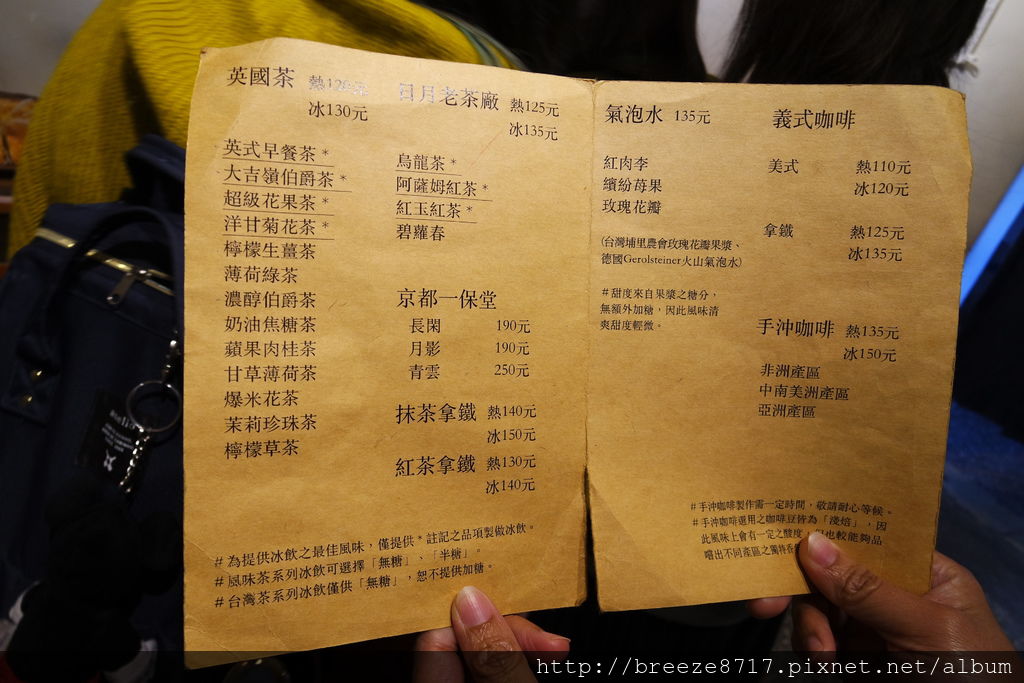 英國茶 熱120元
冰130元
英式早餐茶 *
大吉嶺伯爵茶 *
超級花果茶 *
洋甘菊花茶 *
檸檬生薑茶
薄荷綠茶
濃醇伯爵茶
奶油焦糖茶
蘋果肉桂茶
甘草薄荷茶
爆米花茶
茉莉珍珠茶
檸檬草茶
日月老茶廠 熱125元
冰135元
烏龍茶 *
阿薩姆紅茶 *
紅玉紅茶 *
碧蘿春
京都一保堂
長閑 190元
月影 190元
青雲 250元
抹茶拿鐵 熱140元
冰150元
紅茶拿鐵 熱130元
冰140元
#為提供冰飲之最佳風味，僅提供*註記之品項製做冰飲。
#風味茶系列冰飲可選擇「無糖」、「半糖」。
#台灣茶系列冰飲僅供「無糖」，恕不提供加糖。
氣泡水 135元
紅肉李
繽紛苺果
玫瑰花瓣
(台灣埔里農會玫瑰花瓣果漿、
德國Gerolsteiner火山氣泡水)
#甜度來自果漿之糖分，
無額外加糖，因此風味清
爽甜度輕微。
義式咖啡
美式 熱110元
冰120元
拿鐵 熱125元
冰135元
手沖咖啡 熱135元
冰150元
非洲產區
中南美洲產區
亞洲產區
#手沖咖啡製作需一定時間，敬請耐心等候。
#手沖咖啡選用之咖啡豆皆為「淺焙」，因
此風味上會有一定之酸度，但也較能夠品
嚐出不同產區之獨特
http://breeze8717.pixnet.net/album